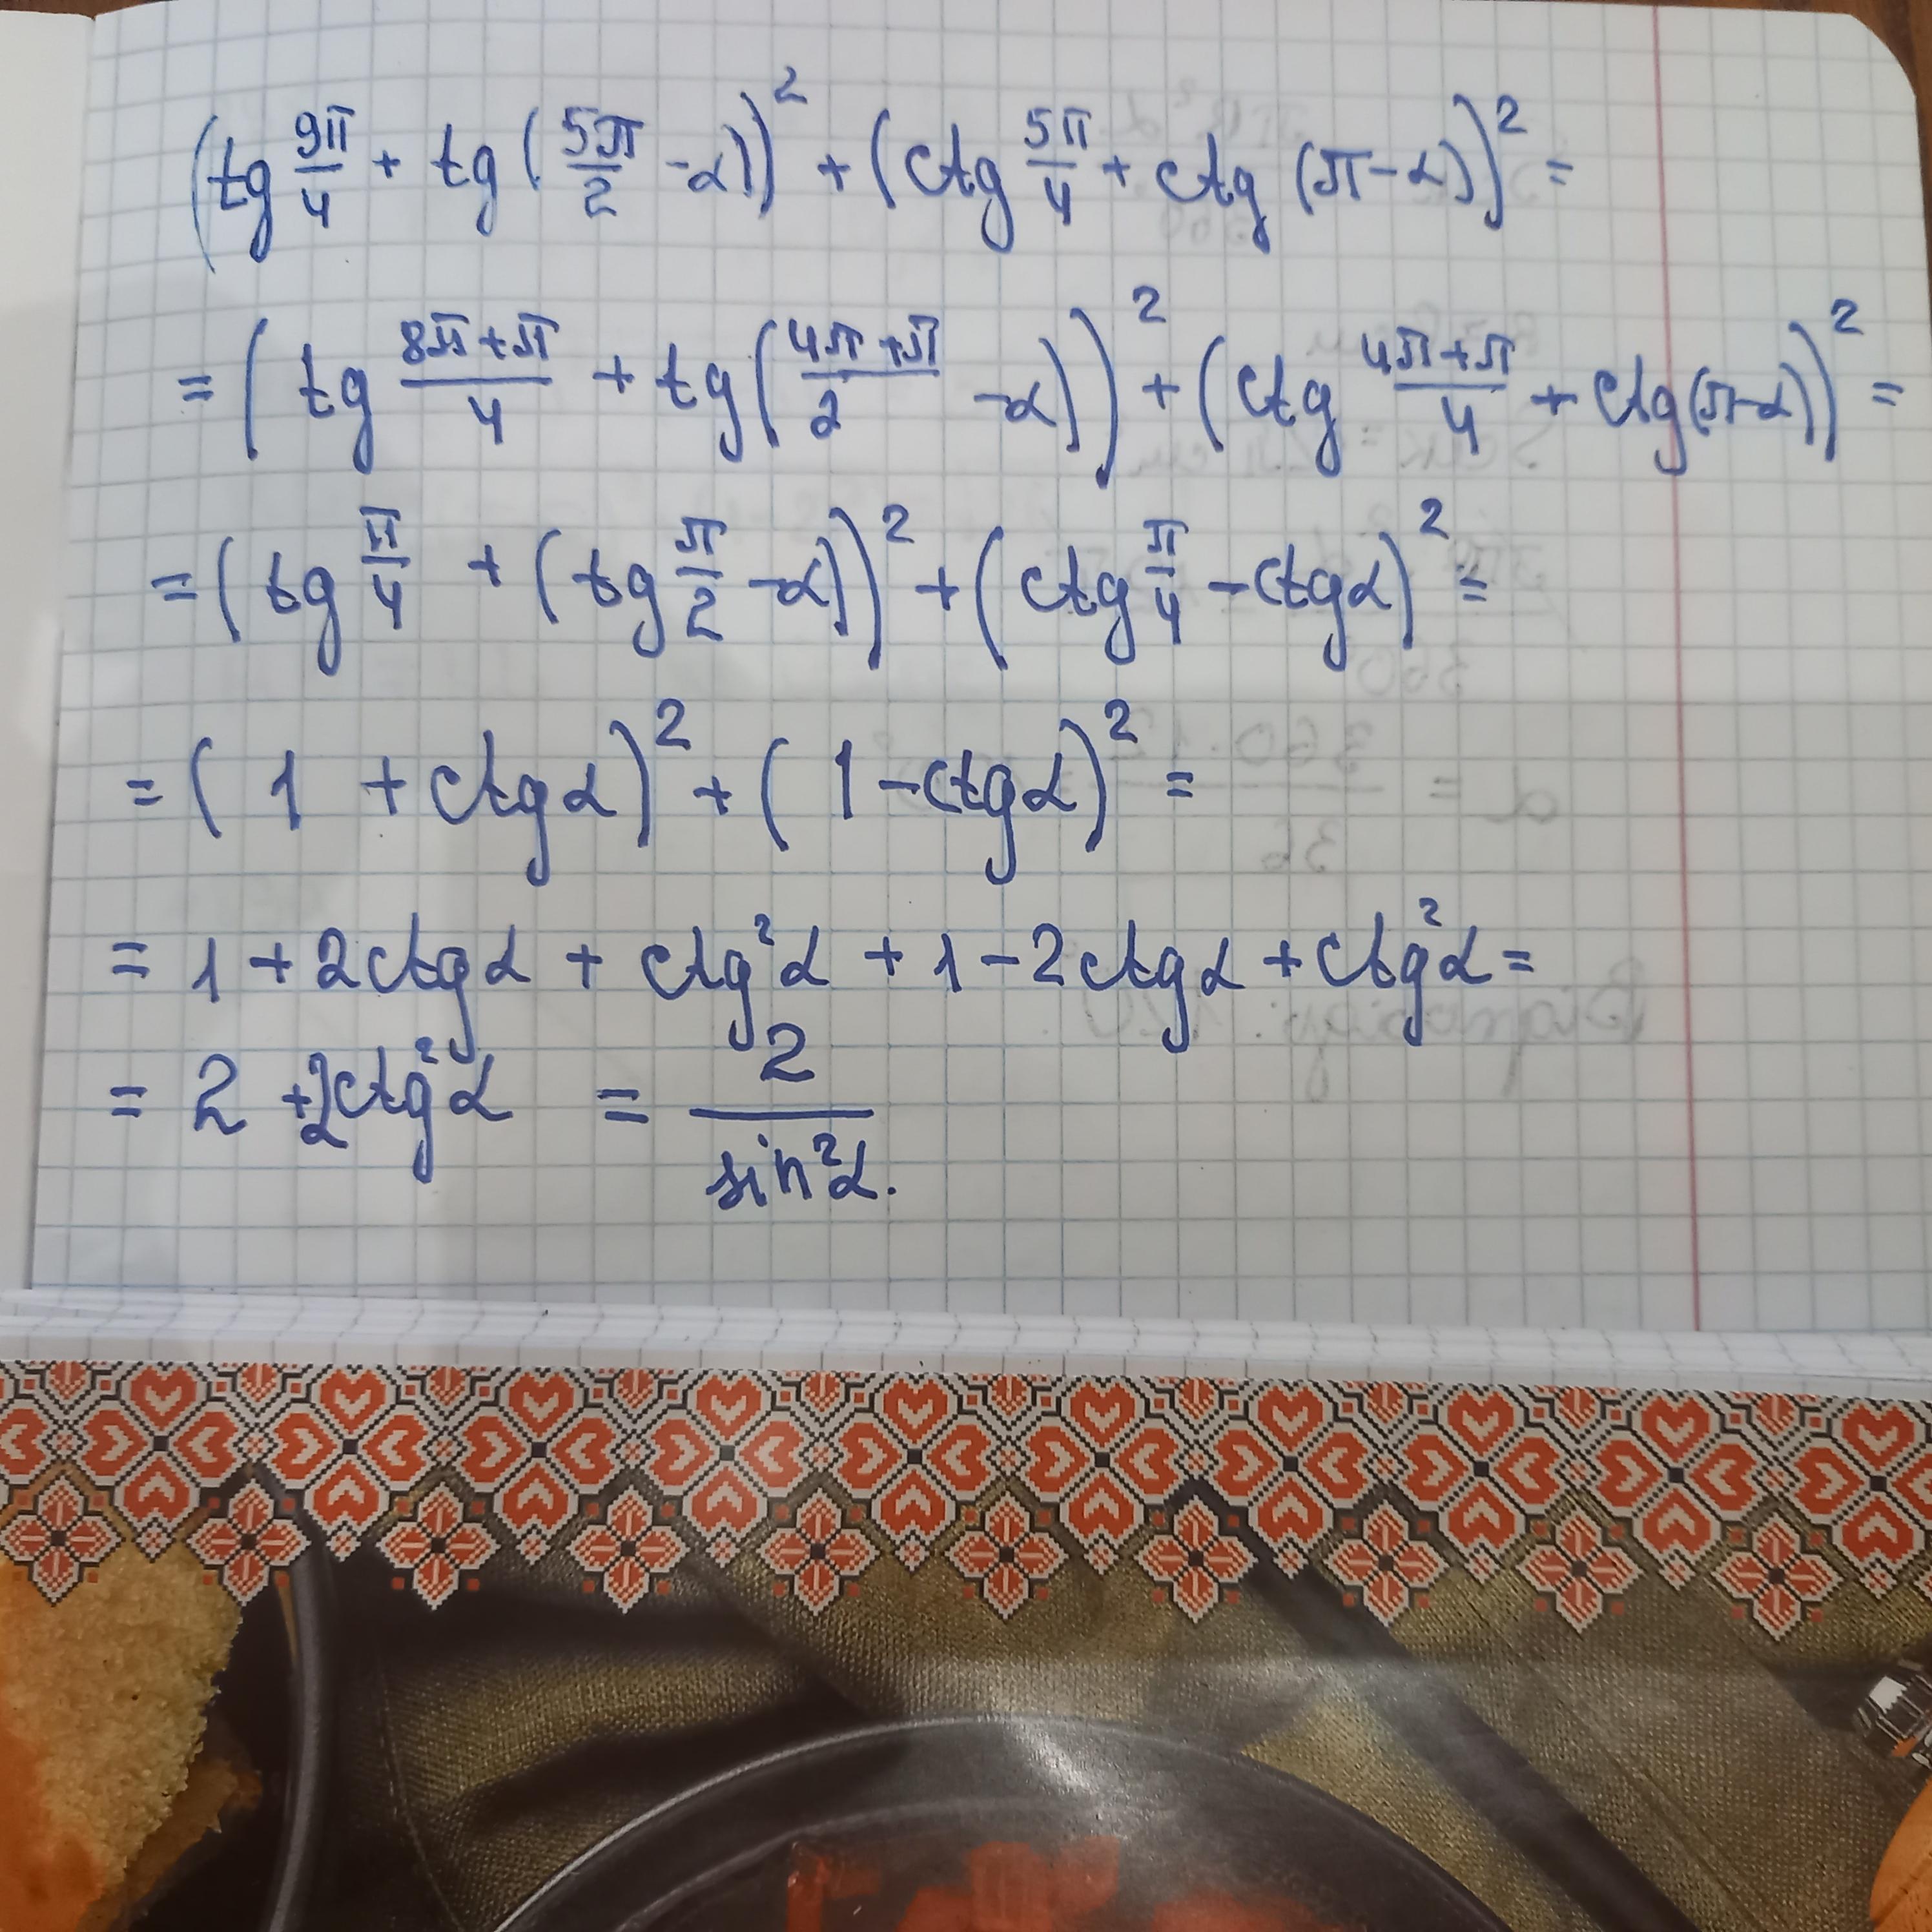 (tg 9π/4 + tg (5π/2 - α))² + (ctg 5π/4 + ctg (π - α))² =
= (tg 8π+π/4 + tg (4π+π/2 - α))² + (ctg 4π+π/4 + ctg(π-α))² =
= (tg π/4 + (tg π/2 - α))² + (ctg π/4 - ctg α)² =
= (1 + ctg α)² + (1 - ctg α)² =
= 1 + 2ctg α + ctg² α + 1 - 2ctg α + ctg² α =
= 2 + 2ctg² α = 2/sin² α.